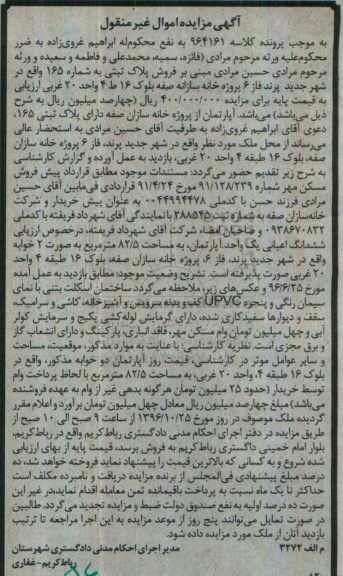 آگهی مزایده اموال غیر منقول
به موجب پرونده کلاسه ۹۶۴۱۶۱ به نفع محکوم‌له ابراهیم غروی‌زاده به ضرر
محکوم‌علیه ورثه مرحوم مرادی (فائزه، سمیه، محمدعلی و فاطمه و سعیده و ورثه
مرحوم مرادی حسین مرادی مبنی بر فروش پلاک ثبتی به شماره ۱۶۵ واقع در
شهر جدید پرند فاز ۶ پروژه خانه سازانه صفه بلوک ۱۶ ط ۴ واحد ۲۰ غربی ارزیابی
به قیمت پایه برای مزایده ۴۰۰/۰۰۰/۰۰۰ ریال (چهارصد میلیون ریال به شرح
ذیل می‌باشد) می‌باشد. آپارتمان از پروژه خانه سازان صفه دارای پلاک ثبتی ۱۶۵،
دعوی آقای ابراهیم غروی‌زاده به طرفیت آقای حسین مرادی به استحضار عالی
می‌رساند از محل ملک مورد نظر واقع در شهر جدید پرند، فاز ۶ پروژه خانه سازان
صفه، بلوک ۱۶ طبقه ۴ واحد ۲۰ غربی، بازدید به عمل آورده و گزارش کارشناسی
به شرح زیر تقدیم حضور می‌گردد: مستندات موجود مطابق قرارداد پیش فروش
مسکن مهر شماره ۹۱/۱۲۸/۲۳۹ مورخ ۹۱/۴/۲۴ قراردادی فی‌مابین آقای حسین
مرادی فرزند حسن با کدملی ۰۰۴۴۹۹۴۴۷۸ به عنوان پیش خریدار و شرکت
خانه‌سازان صفه به شماره ثبت ۲۸۸۵۴۵ با نمایندگی آقای شهرداد فریفته با کدملی
۰۹۳۸۶۷۰۸۳۲ و صاحبان امضاء شرکت آقای شهرداد فریفته، درخصوص ارزیابی
ششدانگ اعیانی یک واحد آپارتمان، به مساحت ۸۲/۵ مترمربع به صورت ۲ خوابه
واقع در شهر جدید پرند، فاز ۶، پروژه خانه سازان صفه، بلوک ۱۶ طبقه ۴ واحد
۲۰ غربی صورت پذیرفته است. تشریح وضعیت موجود: مطابق بازدید به عمل آمده
مورخ ۹۶/۶/۲۵ و عکس‌های زیر، ملاحظه می‌گردد ساختمان اسکلت بتنی با نمای
سیمان رنگی و پنجره UPVC کف و بدنه سرویس و آشپزخانه، کاشی و سرامیک،
سقف و دیوارها سفیدکاری شده، دارای گرمایش لوله کشی پکیج و سرمایش کولر
آبی و چهل میلیون تومان وام مسکن مهر، فاقد انباری، پارکینگ و دارای انشعاب گاز
و برق مجزی است. نظریه کارشناسی: با عنایت به موارد مذکور، موقعیت، مساحت
و سایر عوامل موثر در کارشناسی، قیمت روز آپارتمان دو خوابه مذکور، واقع در
بلوک ۱۶ طبقه ۴، واحد ۲۰ غربی، به مساحت ۸۲/۵ مترمربع با لحاظ پرداخت وام
توسط خریدار (حدود ۲۵ میلیون تومان هر گونه بدهی غیر از وام به عهده فروشنده
می‌باشد) مبلغ چهارصد میلیون ریال معادل چهل میلیون تومان برآورد و اعلام مقرر
گردیده ملک موصوف در روز مورخ ۱۳۹۶/۱۰/۲۵ از ساعت ۹ صبح الی ۱۰ صبح از
طریق مزایده در دفتر اجرای احکام مدنی دادگستری رباط‌کریم واقع در رباط‌کریم،
بلوار امام خمینی دادگستری رباط‌کریم به فروش برسد، قیمت پایه از بهای ارزیابی
شده شروع و به کسانی که بالاترین قیمت را پیشنهاد نماید فروخته خواهد شد، ده
درصد مبلغ پیشنهادی فی‌المجلس از برنده مزایده دریافت و نامبرده مکلف است
حداکثر تا یک ماه نسبت به پرداخت باقیمانده ثمن معامله اقدام نماید، در غیر این
صورت ده درصد اولیه به نفع صندوق دولت ضبط و مزایده تجدید می‌گردد. طالبین
در صورت تمایل می‌توانند پنج روز از موعد مزایده به این اجرا مراجعه تا ترتیب
بازدید آنان از ملک مورد مزایده داده شود.
م الف ۳۲۷۲ مدیر اجرای احکام مدنی دادگستری شهرستان
رباط‌کریم-غفاری